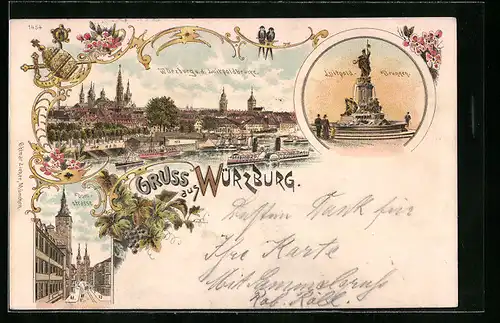 1484
Würzburg v. d. Luitpoldbrücke.
Luitpold-Brunnen
Gruss aus Würzburg.
Dom-
strasse
Ottmar Zieher, München.
Besten Dank für
Ihre Karte
Mit Sammelgruß
Rob. Röll.